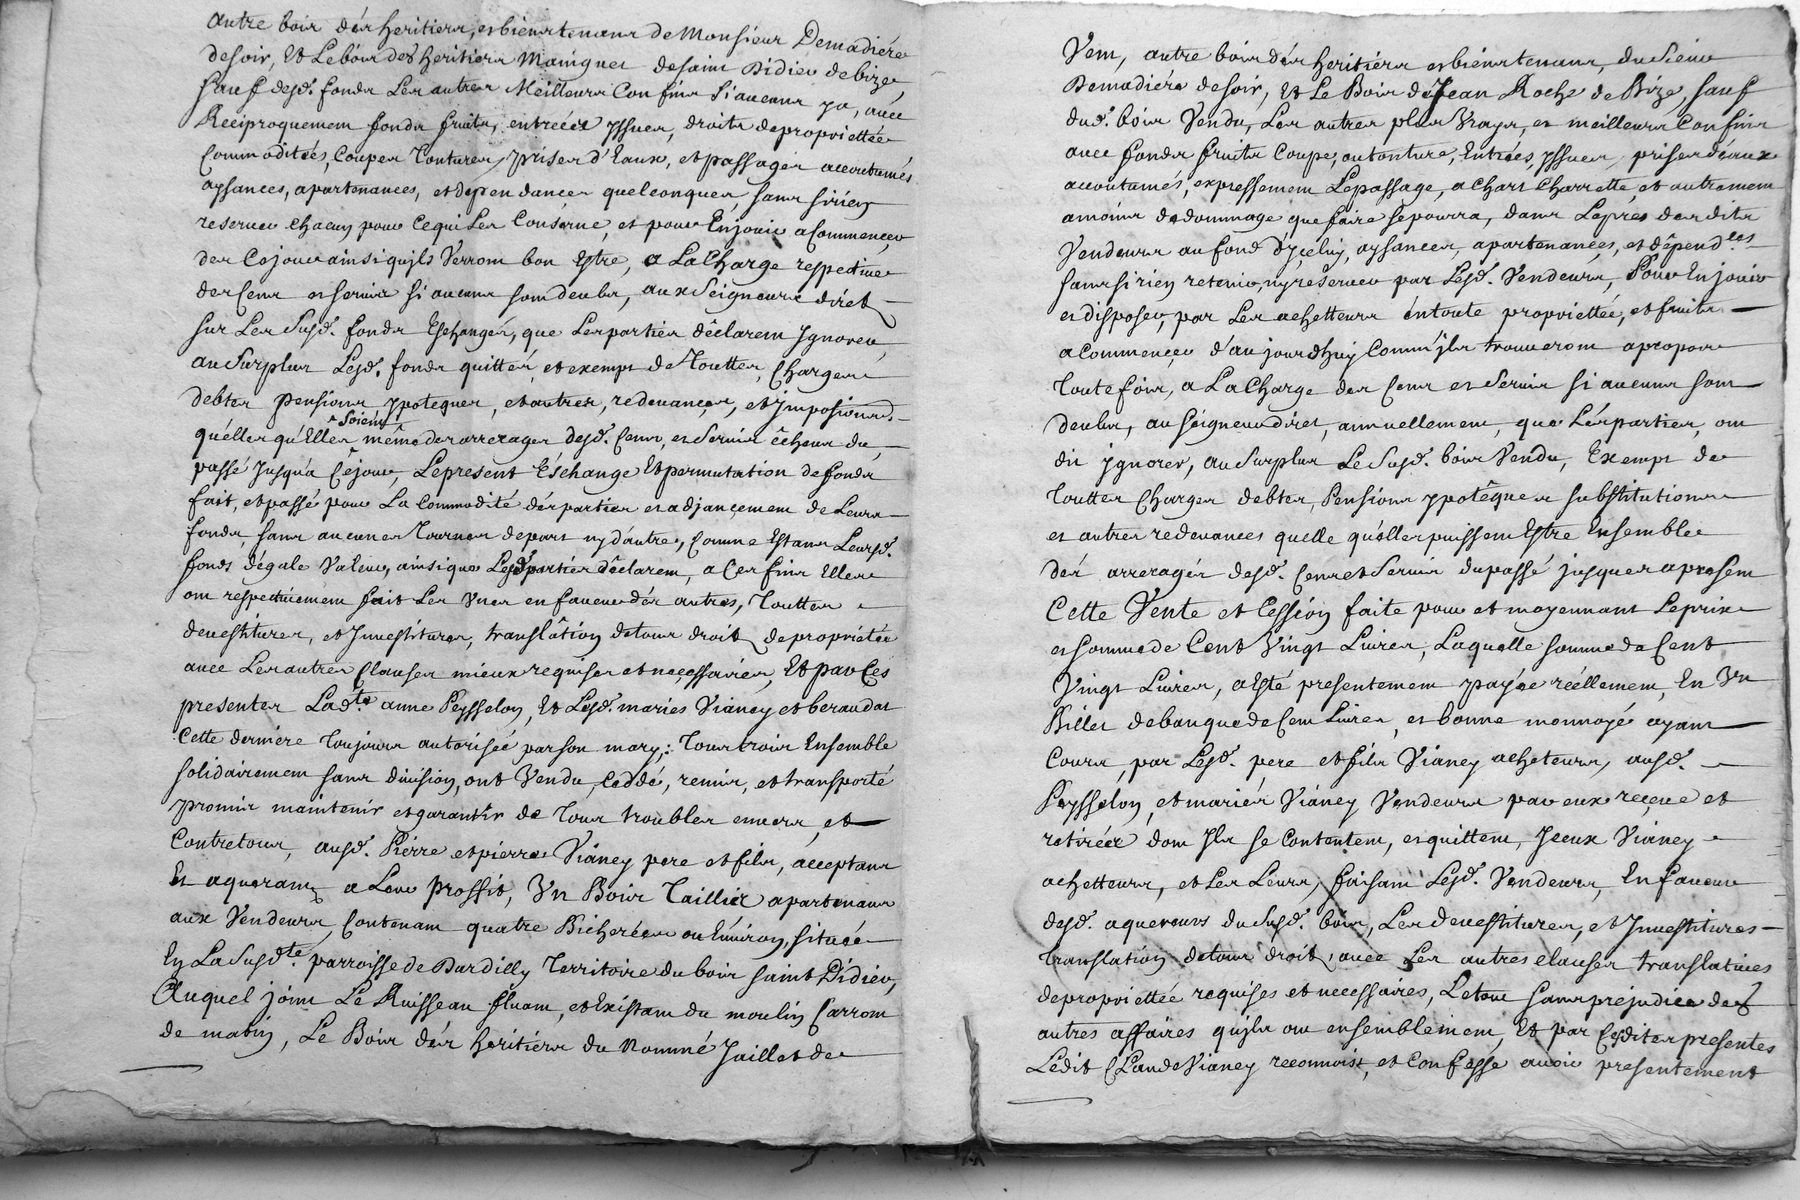 autre bois dés heritiers, et bienstenans de Monsieur Demadiére
de soir, Et Le bois des heritiers Maniguet de saint Didier de bize,
sauf desd. fonds Les autres Meilleurs Confins si aucuns ya, avec
Reciproquement fonds fruits, entrées yssues, droits de propriettée
Commoditées, Coupes Tontures, prises d'Eaux, et passages accoutumés
aysances, apartenances, et dépendances quelconques, sans sirien
reserver chacun pour ce qui Les Conserne, et pour En jouir a Commencer
des Cejourd ainsi qu'jls Verront bon Estre, a La Charge respective
des Cens et servis si aucuns sont deubs, aux Seigneurs diréts
sur Les Susd. fonds Eschangés, que Les parties déclarent Ignorer,
au Surplus Lesd. fonds quittés, et exempt de Touttes, Charges
debtes pensions ypoteques, et autres, redevances, et Impositions,
quélles qu'Elles soient même des arrerages desd. Cens, et Servis écheus du
passé Jusqu'a Céjour, Le present Eschange Et permutation de fonds
fait, et passé pour La Commodité dés parties et adjançement de Leurs
fonds, sans aucunes Tournes de part ny d'autre, Comme Estans Leursd.
fonds d'égale Valeur, ainsi que Lesd. parties déclarent, a Ces fins Elles
ont respectivement fait Les Unes en faveur dés autres, Touttes
devestitures, et Jnvestitures, translâtion de tous droits de propriétée
avec Les autres Clauses mieux requises et neçessaires, Et par Ces
presentes Lad.te anne Peysselon, Et Lesd. mariés Vianey et beraudat
Cette derniére Toujours autorisée par son mary, Tous trois Ensemble
solidairement sans division, ont Vendu, Ceddé, remis, et transporté
promis maintenir et garantir de Tous troubles envers, et
Contre tous, ausd. Pierre et pierre Vianey pere et fils, acceptans
Et aquerans a Leur Proffit, Un Bois Taillier apartenans
aux Vendeurs, Contenant quatre Bicherées ou Environ, située
En La Susd.te parroisse de Dardilly Territoire du bois saint Didier,
Auquel joint Le Ruisseau fluant, et Existant du moulin Carrom
de matin, Le Bois dés heritiérs du Nommé Jaillet de
Vent, autre bois dés heritiérs et bienstenans, du Sieur
Demadiére de soir, Et Le Bois de Jean Roche de Bize, sauf
dud. bois Vendu, Les autres plus Vrays, et meilleurs Confins
avec fonds fruits Coupe, ou tonture, Entrées, yssues, prises d'éaux
accoutumés, expressement Le passage, a Chars Charrette, et autrement
a moins de dommage que faire se pourra, dans Le prés des dits
Vendeurs au fond d'Yçeluy, aysances, apartenances, et dépend.ces
sans si rien retenir, ny réserver par Lesd. Vendeurs, Pour En jouir
et disposer, par Les achetteurs éntoute propriettée, et fruits
a Commencer d'aujourdhuy Comm'jls trouveront apropos
Toutefois, a La Charge des Cens et Servis si aucuns sont
deubs, au séigneur dirét, annuellement, que Lés parties, ont
dit Ignorer, au Surplus Le Susd. bois Vendu, Exempt de
Touttes Charges debtes, Pensions ypotêques substitutions
et autres redevances quelle qu'élles puissent Estre Ensemble
dés arreragés desd. Cens et Servis du passé jusques apresent
Cette Vente et Cession faite pour et moyennant Le prix
et somme de Cent Vingt Livres, Laquelle somme de Cent
Vingt Livres, a Esté presentement payée réellement, En Un
Billet de banque de Cent Livres, et bonne monnoyé ayant
Cours, par Lesd. pere et fils Vianey acheteurs, ausd.
Peysselon, et mariés Vianey Vendeurs par eux reçeue et
retirées dont Jls se Contentent, et quittent, Jceux Vianey
achetteurs, et Les Leurs, faisant Lesd. Vendeurs, En faveur
desd. aquereurs du Susd. bois, Les devestitures, et Jnvestitures
Translation detous droits, avec Les autres clauses translatives
de propriettée requises et necessaires, Le tout sans prejudice des
autres affaires qu'jls ont ensemblement, Et par Cesdites presentes
Ledit Claude Vianey reconnoist, et Confesse avoir présentement